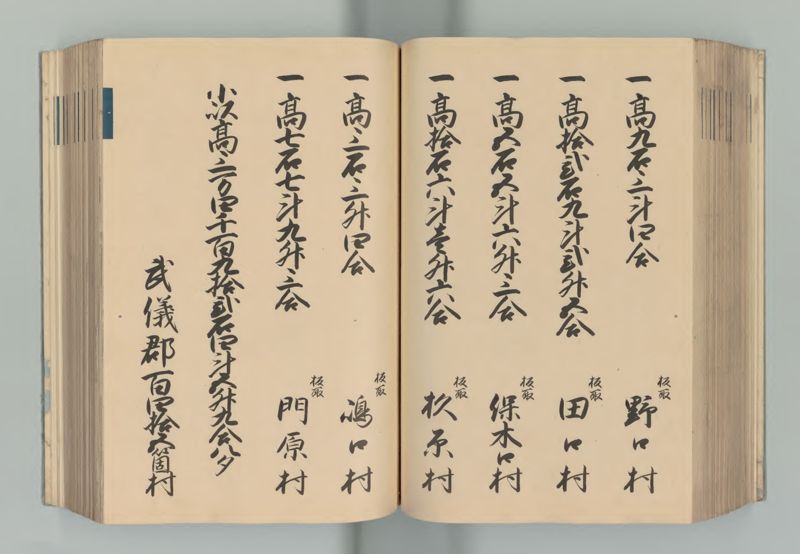 一髙九石三斗四合 板取 野口村
一髙拾弐石九斗弐升五合 板取 田口村
一髙五石五斗六升三合 板取 保木口村
一髙拾石六斗壱升六合 板取 杉原村
一髙三石三升四合 板取 嶋口村
一髙七石七斗九升三合 板取 門原村
小以髙三万四千百九拾弐石四斗五升九合八夕
武儀郡百四拾五箇村